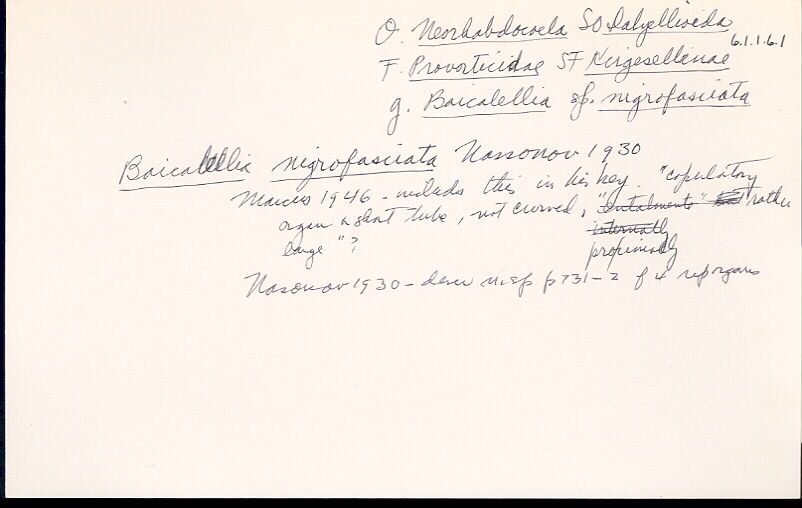 O. Neorhabdocoela SO Dalyellioida
6.1.1.6.1
F. Provorticidae SF Kirgesellinae
g. Baicalellia sp. nigrofasciata
Baicalellia nigrofasciata Nassonov 1930
Marcus 1946 - includes this in his key. "copulatory
organ a short tube, not curved, rather
internally
large"? proximally
Nasonov 1930 - descr n.sp p 731-2 f 4 rep organs